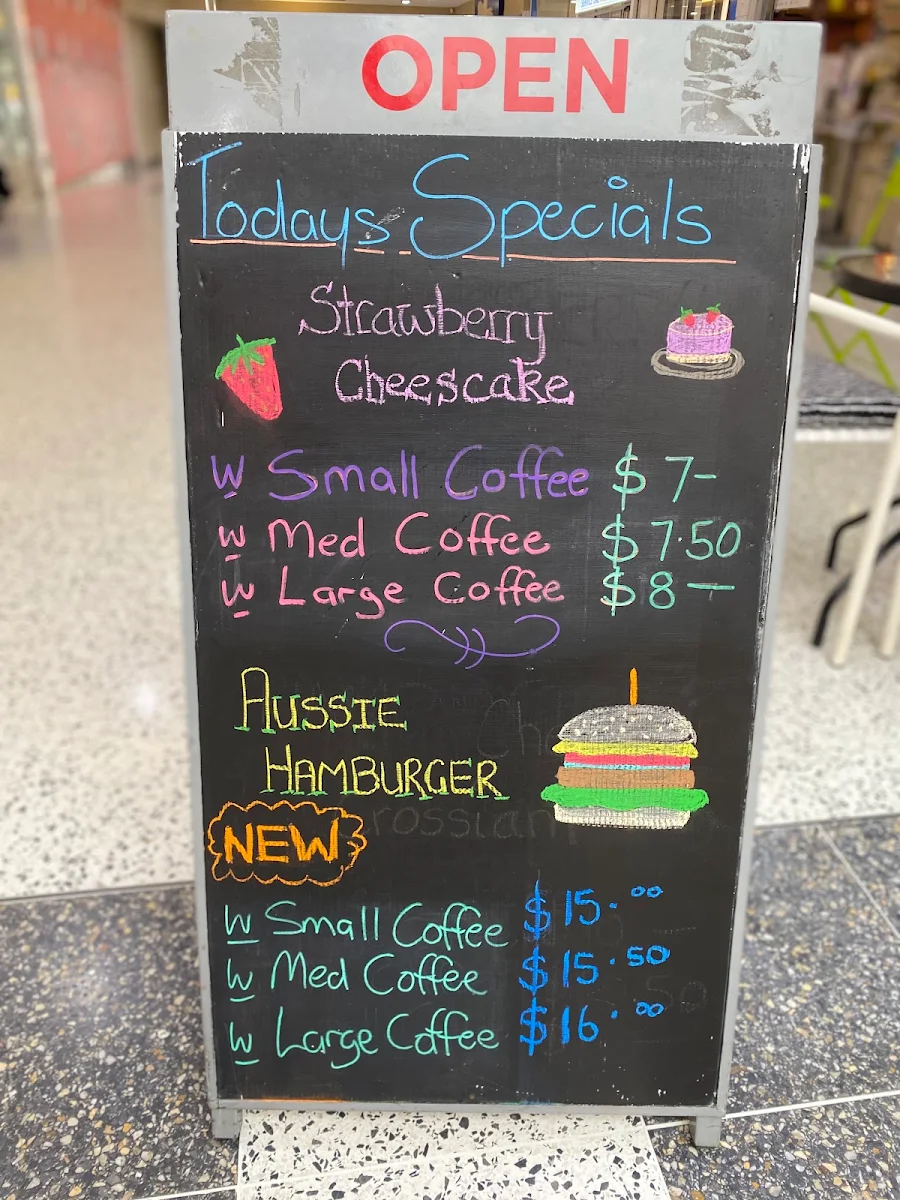 OPEN
Todays Specials
Strawberry
Cheescake
W Small Coffee $7-
W Med Coffee $7.50
W Large Coffee $8-
AUSSIE
HAMBURGER
NEW
W Small Coffee $15.00
W Med Coffee $15.50
W Large Coffee $16.00